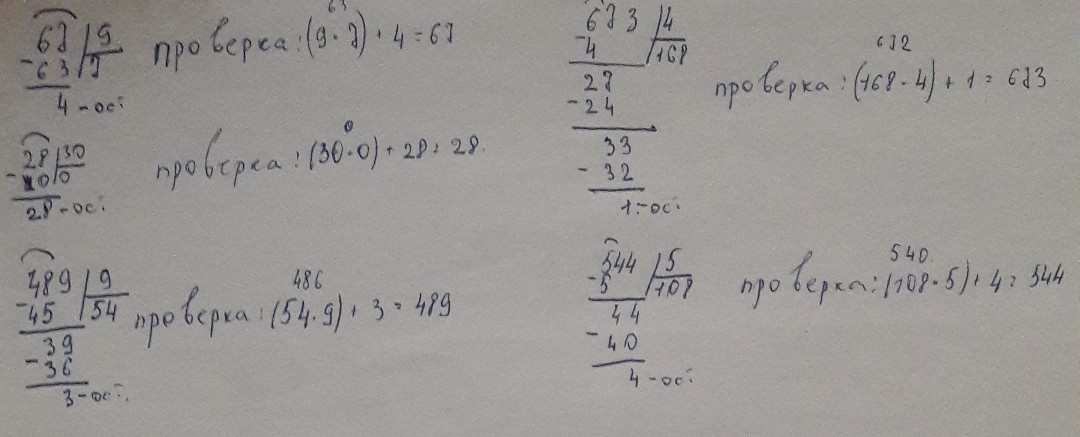 67 9 проверка: (9·7) + 4 = 67
63
-63 7
4 - ост.
28 30 проверка: (30·0) + 28 = 28.
0
-00 0
28 - ост.
489 9 проверка: (54·9) + 3 = 489
486
-45 54
39
-36
3 - ост.
673 4 проверка: (168·4) + 1 = 673
672
-4 168
27
-24
33
-32
1 - ост.
544 5 проверка: (108·5) + 4 = 544
540
-5 108
44
-40
4 - ост.